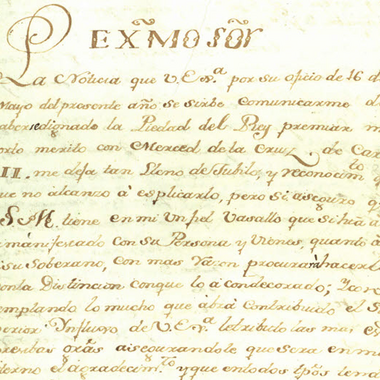 EXᵐ̃ᴼ SOR̃
La Noticia que V.Exª. por su oficio de 16 d
Mayo del presente año se sirbe comunicarme d
aberse dignado la Piedad del Rey premiar m
orto merito con Merced de la Cruz de Car
III. me deja tan lleno de Jubilo, y reconocim
que no alcanzo à esplicarlo, pero si aseguro q
S.M. tiene en mi un fiel Vasallo que si hà
manifestado con su Persona y Vienes, quanto à
su Soberano, con mas raçon procurarà hacerl
con la Distincion con que lo à condecorado;
templando lo mucho que abrà contribuido el S
perior Ynfluxo de V.Exª. le tributo las mas
grãs asegurandote que sera en m
terno el agradecimᵗᵒ. y que en todos tpõs. tend